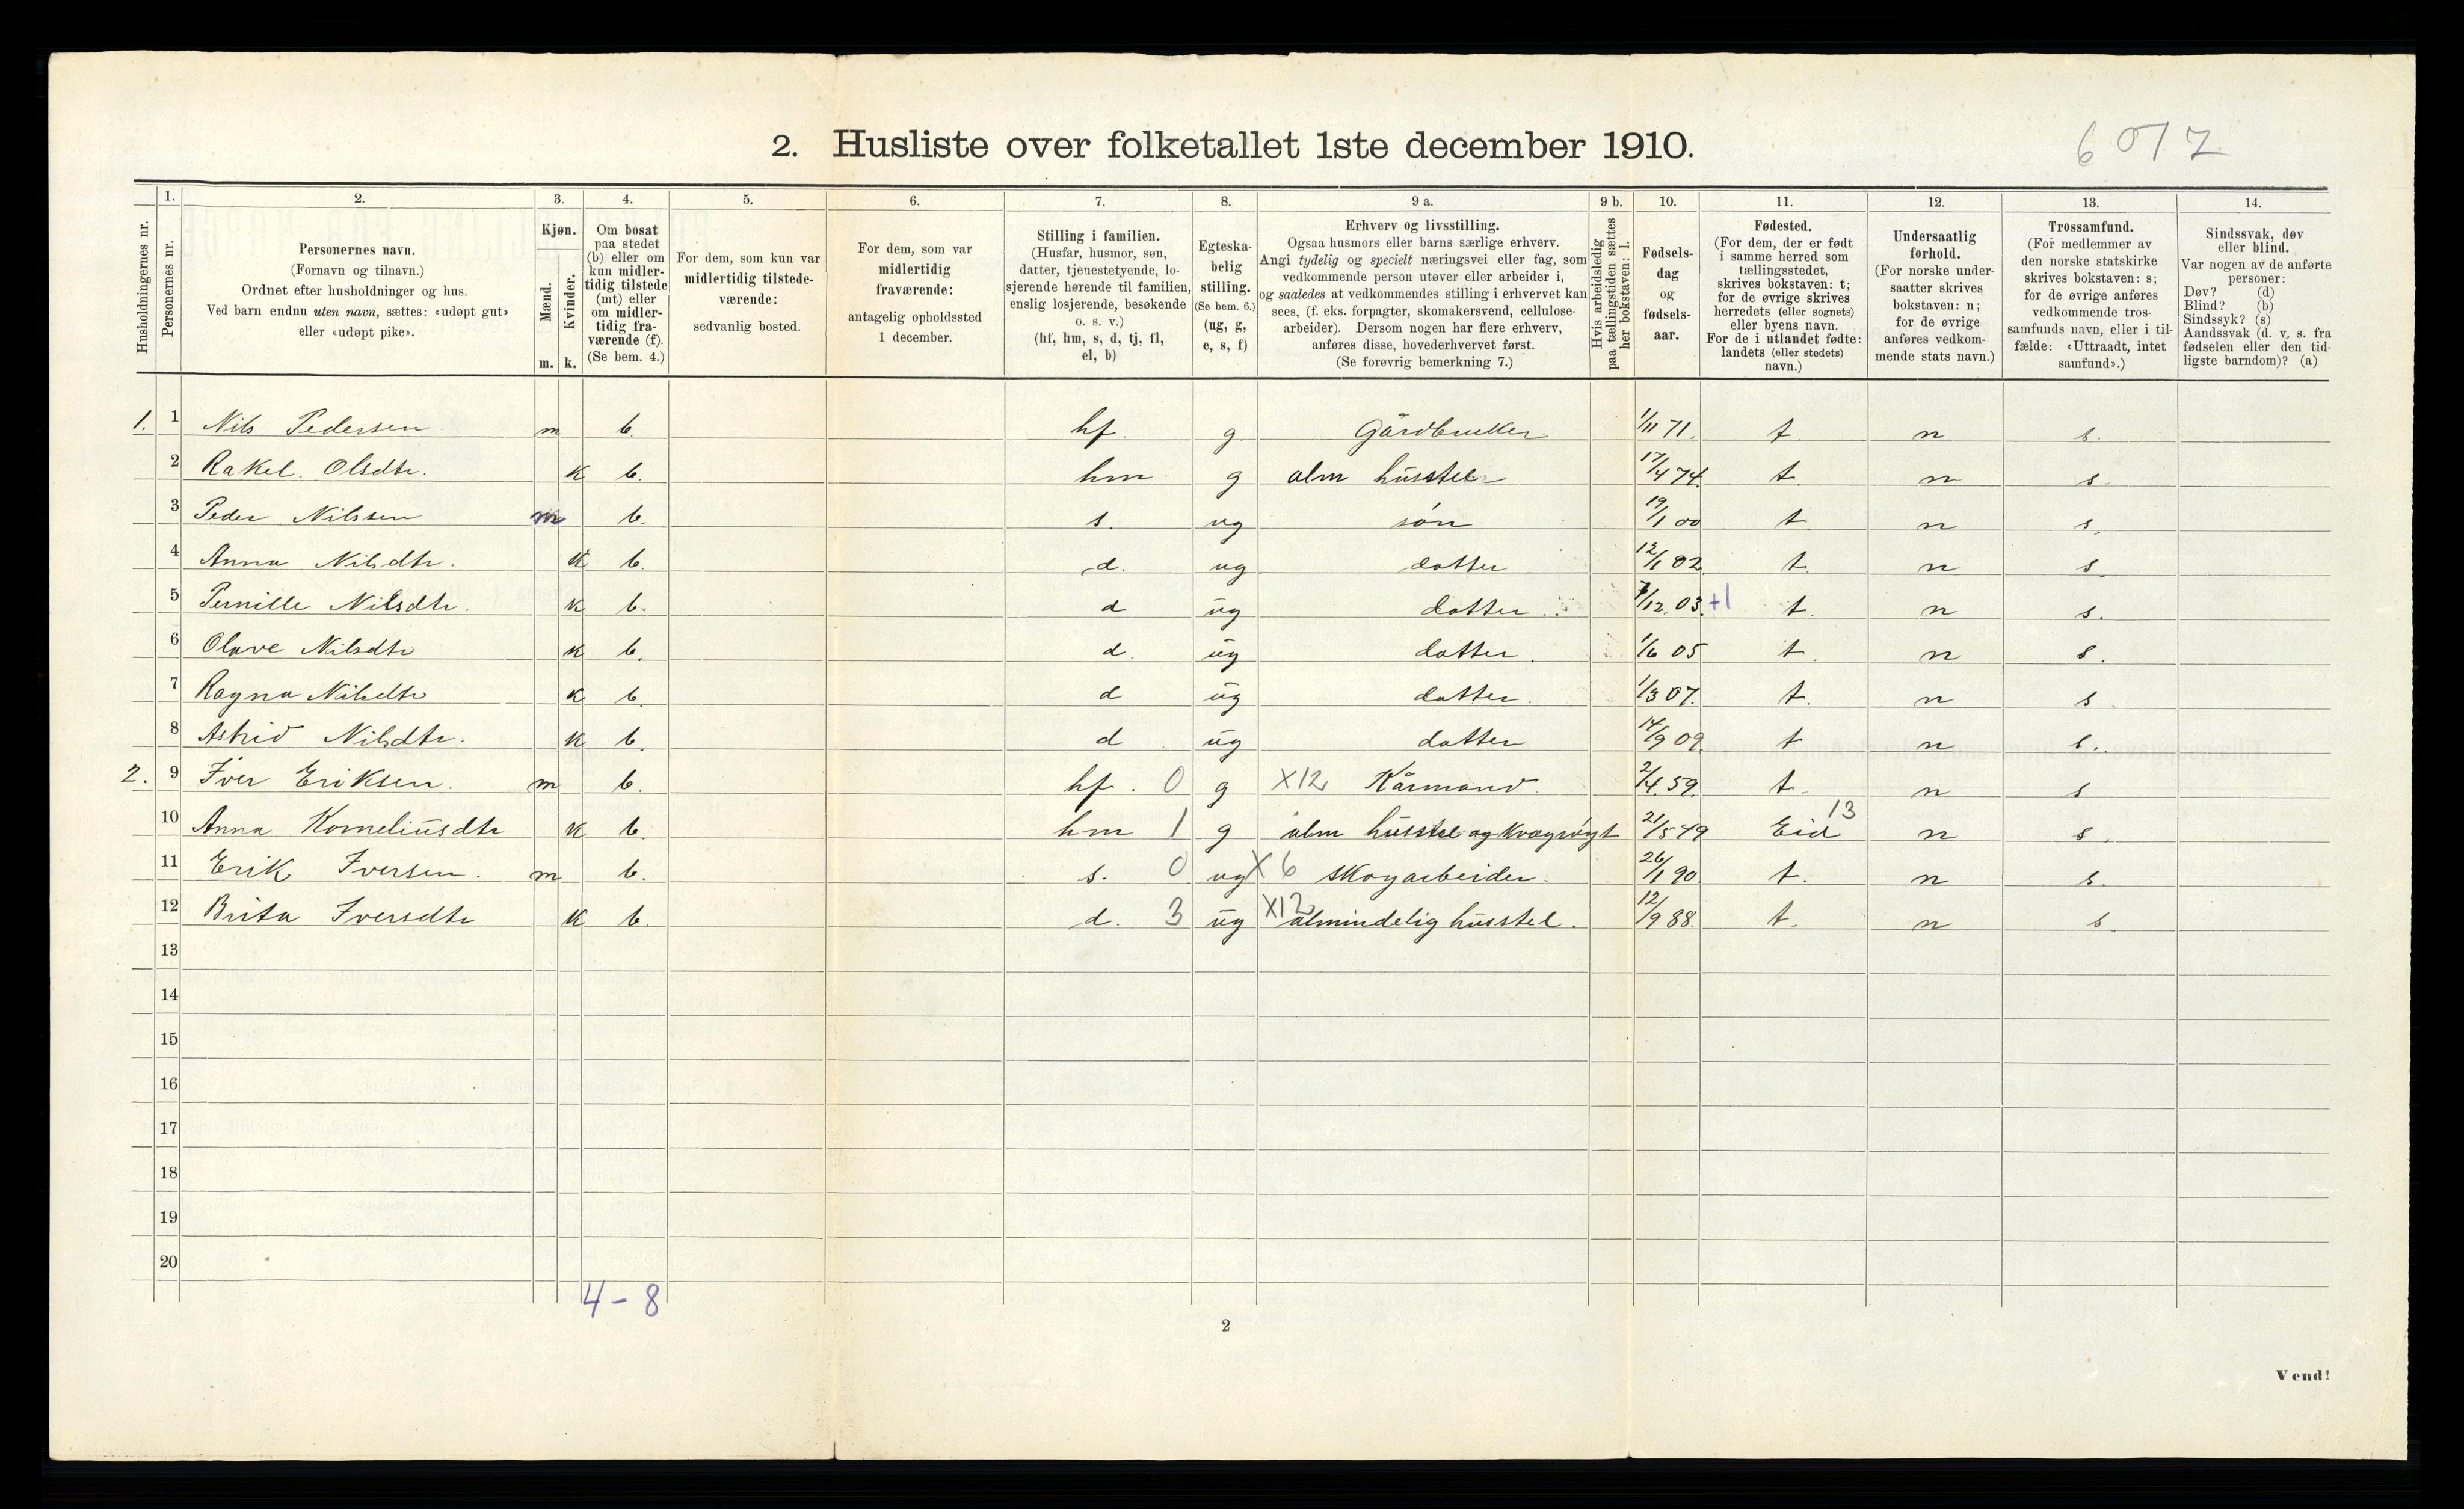 2. Husliste over folketallet 1ste december 1910.
6017
Husholdningernes nr.
1.
Personernes nr.
2.
Personernes navn.
(Fornavn og tilnavn.)
Ordnet efter husholdninger og hus.
Ved barn endnu uten navn, sættes: «udøpt gut»
eller «udøpt pike».
3.
Kjøn.
Mænd.
Kvinder.
m. k.
4.
Om bosat
paa stedet
(b) eller om
kun midler-
tidig tilstede
(mt) eller
om midler-
tidig fra-
værende (f).
(Se bem. 4.)
5.
For dem, som kun var
midlertidig tilstede-
værende:
sedvanlig bosted.
6.
For dem, som var
midlertidig
fraværende:
antagelig opholdssted
1 december.
7.
Stilling i familien.
(Husfar, husmor, søn,
datter, tjenestetyende, lo-
sjerende hørende til familien,
enslig losjerende, besøkende
o. s. v.)
(hf, hm, s, d, tj, fl,
el, b)
8.
Egteska-
belig
stilling.
(Se bem. 6.)
(ug, g,
e, s, f)
9 a.
Erhverv og livsstilling.
Ogsaa husmors eller barns særlige erhverv.
Angi tydelig og specielt næringsvei eller fag, som
vedkommende person utøver eller arbeider i,
og saaledes at vedkommendes stilling i erhvervet kan
sees, (f. eks. forpagter, skomakersvend, cellulose-
arbeider). Dersom nogen har flere erhverv,
anføres disse, hovederhvervet først.
(Se forøvrig bemerkning 7.)
9 b.
Hvis arbeidsledig
paa tællingstiden sættes
her bokstaven: l.
10.
Fødsels-
dag
og
fødsels-
aar.
11.
Fødested.
(For dem, der er født
i samme herred som
tællingsstedet,
skrives bokstaven: t;
for de øvrige skrives
herredets (eller sognets)
eller byens navn.
For de i utlandet fødte:
landets (eller stedets)
navn.)
12.
Undersaatlig
forhold.
(For norske under-
saatter skrives
bokstaven: n;
for de øvrige
anføres vedkom-
mende stats navn.)
13.
Trossamfund.
(For medlemmer av
den norske statskirke
skrives bokstaven: s;
for de øvrige anføres
vedkommende tros-
samfunds navn, eller i til-
fælde: «Uttraadt, intet
samfund».)
14.
Sindssvak, døv
eller blind.
Var nogen av de anførte
personer:
Døv? (d)
Blind? (b)
Sindssyk? (s)
Aandssvak (d. v. s. fra
fødselen eller den tid-
ligste barndom)? (a)
1. 1 Nils Pedersen. m b. hf. g Gårdbruker 1/11 71. t. n s.
2 Rakel. Olsdtr. k b. hm g alm husstel 17/4 74. t. n s.
3 Peder Nilssen m b. s. ug søn 19/1 00 t n s.
4 Anna Nilsdtr. k b. d. ug datter 12/1 02 t. n s.
5 Pernille Nilsdtr. k b. d ug datter 7/12. 03. +1 t. n s.
6 Olave Nilsdtr k b. d. ug datter. 1/6 05 t. n s.
7 Ragna Nilsdtr k b. d ug datter. 1/3 07. t. n s.
8 Astrid Nilsdtr. k b. d ug datter 14/9 09 t n s.
2. 9 Iver Eriksen. m b. hf. 0 g X12 Kårmand. 2/4. 59. t. n s
10 Anna Korneliusdtr k b. hm 1 g alm husstel og kvægrøgt 21/5 49 Eid 13 n s.
11 Erik Iversen. m b. s. 0 ug X6 skogarbeider. 26/1 90. t. n s.
12 Brita Iversdtr k b. d. 3 ug X12 almindelig husstel. 12/9 88. t. n s.
13
14
15
16
17
18
19
20
4 - 8
2
Vend!